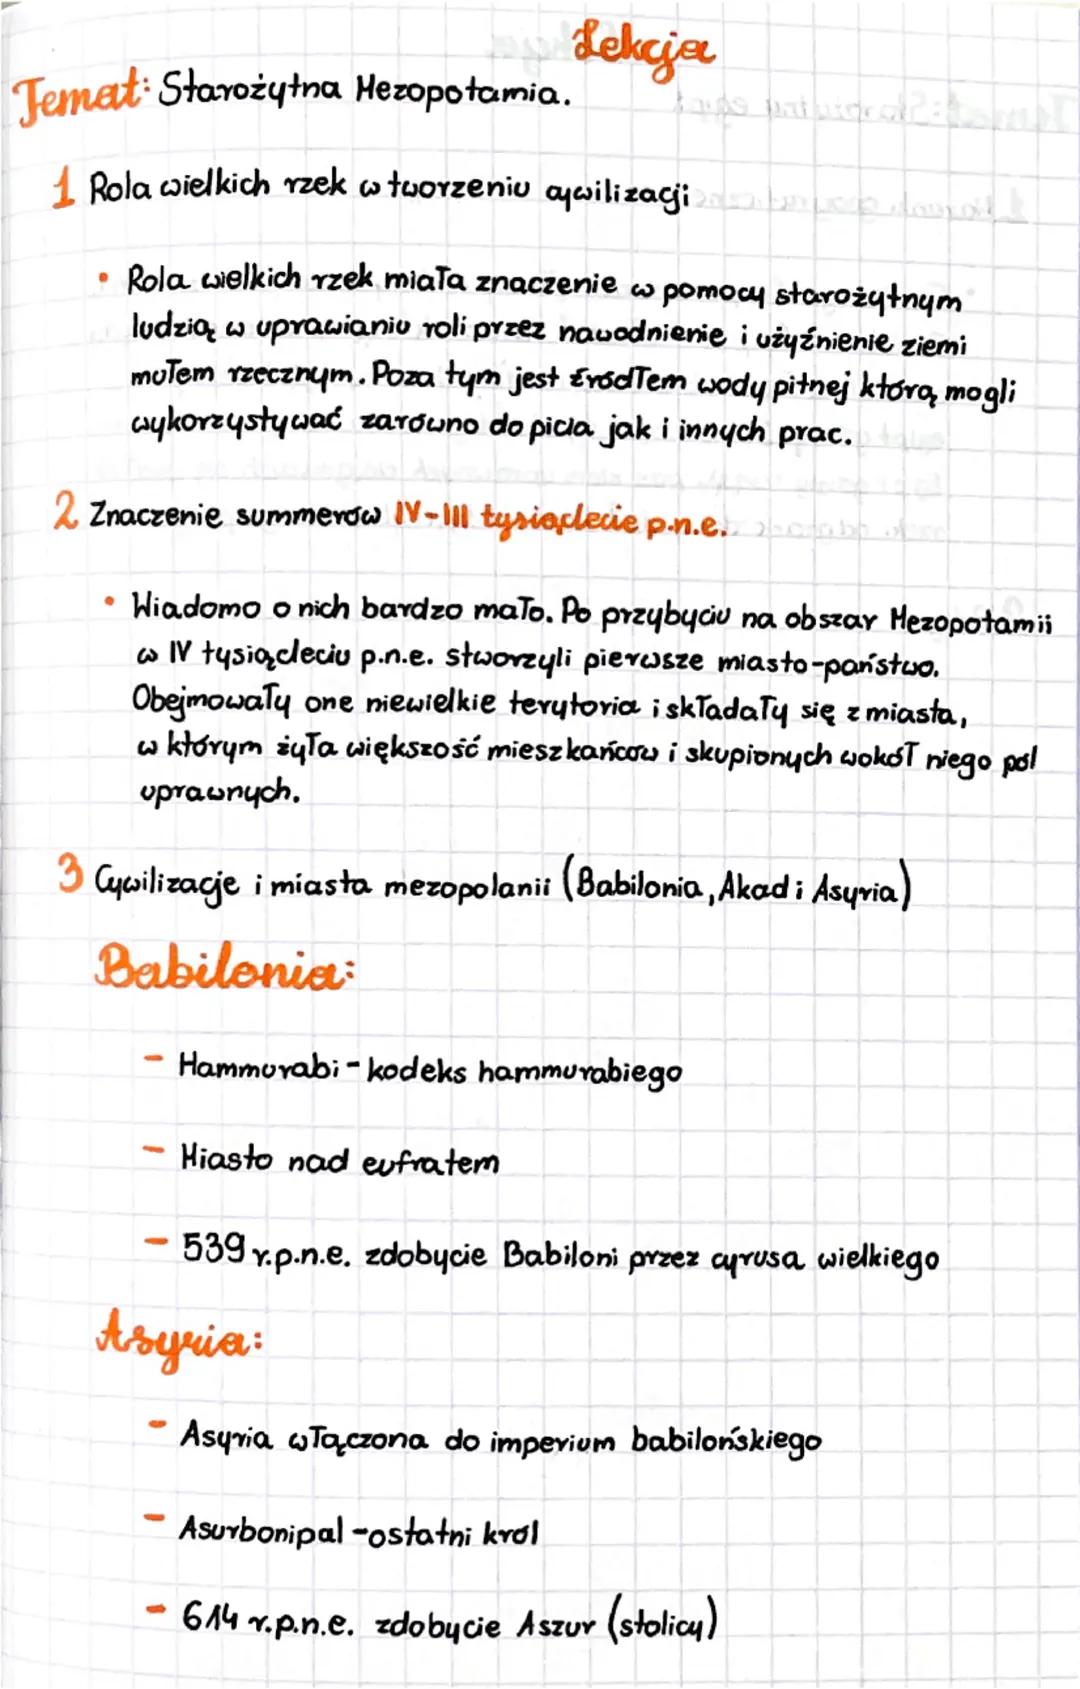 Lekcja
Temat: Starożytna Mezopotamia.
1 Rola wielkich rzek w tworzeniu cywilizacji
• Rola wielkich rzek miała znaczenie w pomocy starożytnym
ludzią w uprawianiu roli przez nawodnienie i użyźnienie ziemi
mułem rzecznym. Poza tym jest źródłem wody pitnej którą mogli
wykorzystywać zarówno do picia jak i innych prac.
2 Znaczenie summerów IV-III tysiąclecie p.n.e.
• Wiadomo o nich bardzo mało. Po przybyciu na obszar Mezopotamii
w IV tysiącleciu p.n.e. stworzyli pierwsze miasto-państwo.
Obejmowały one niewielkie terytoria i składały się z miasta,
w którym żyła większość mieszkańców i skupionych wokół niego pól
uprawnych.
3 Cywilizacje i miasta mezopolanii (Babilonia, Akad i Asyria)
Babilonia:
- Hammurabi - kodeks hammurabiego
- Miasto nad eufratem
- 539 r.p.n.e. zdobycie Babiloni przez cyrusa wielkiego
Asyria:
- Asyria włączona do imperium babilońskiego
- Asurbonipal - ostatni król
- 614 r.p.n.e. zdobycie Aszur (stolicy)